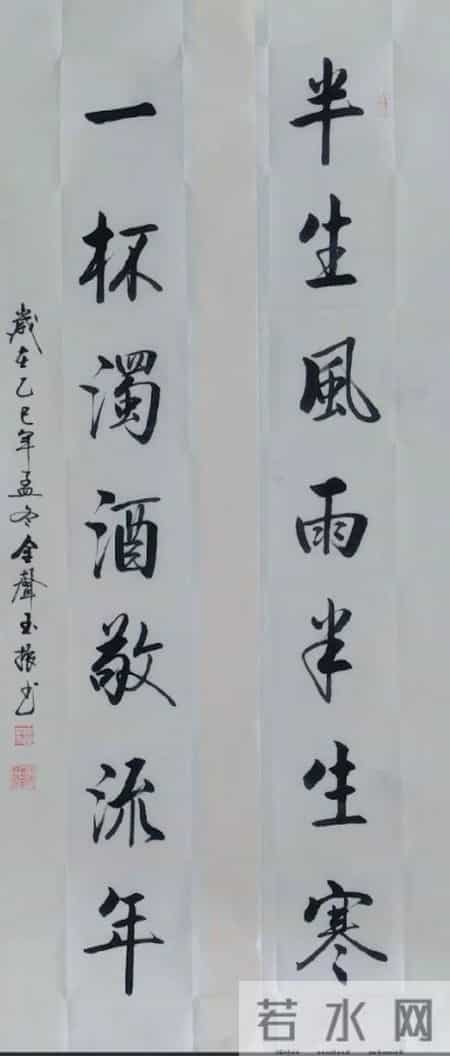 半生風雨半生寒
一杯濁酒敬流年
歲在乙巳年孟冬金聲玉振書
若水网